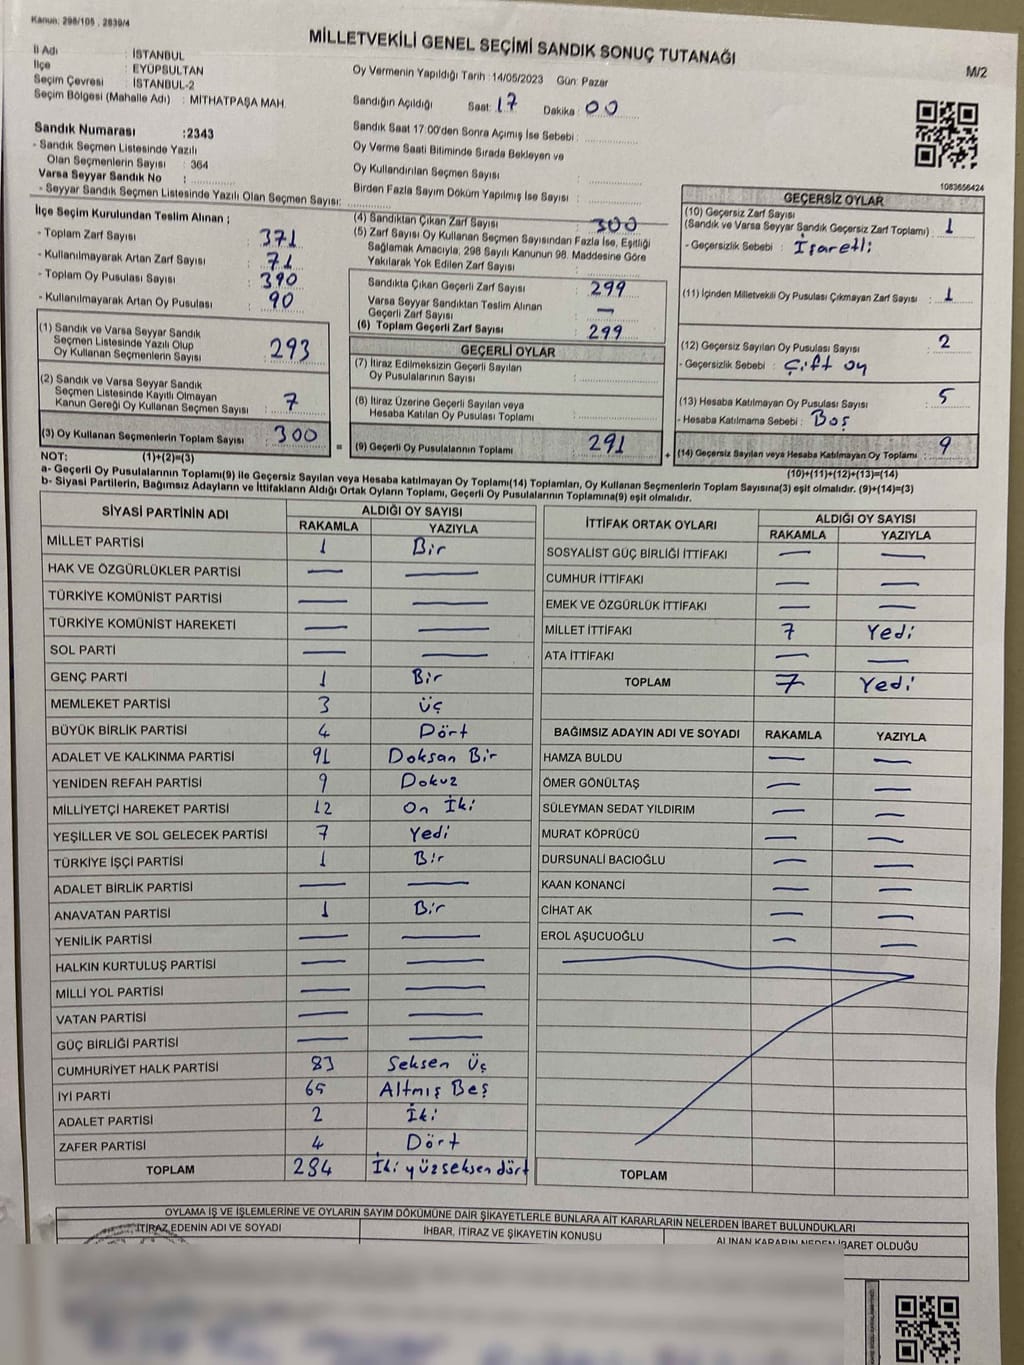 Kanun: 298/105 , 2839/4
MİLLETVEKİLİ GENEL SEÇİMİ SANDIK SONUÇ TUTANAĞI
M/2
İl Adı : İSTANBUL
İlçe : EYÜPSULTAN
Seçim Çevresi : İSTANBUL-2
Seçim Bölgesi (Mahalle Adı) : MİTHATPAŞA MAH.
Sandık Numarası :2343
- Sandık Seçmen Listesinde Yazılı
Olan Seçmenlerin Sayısı : 364
Varsa Seyyar Sandık No :
- Seyyar Sandık Seçmen Listesinde Yazılı Olan Seçmen Sayısı:
Oy Vermenin Yapıldığı Tarih :14/05/2023 Gün: Pazar
Sandığın Açıldığı Saat: 17 Dakika : 00
Sandık Saat 17:00'den Sonra Açımış İse Sebebi :
Oy Verme Saati Bitiminde Sırada Bekleyen ve
Oy Kullandırılan Seçmen Sayısı :
Birden Fazla Sayım Döküm Yapılmış İse Sayısı :
1083656424
İlçe Seçim Kurulundan Teslim Alınan ;
- Toplam Zarf Sayısı : 371
- Kullanılmayarak Artan Zarf Sayısı : 71
- Toplam Oy Pusulası Sayısı : 390
- Kullanılmayarak Artan Oy Pusulası : 90
(1) Sandık ve Varsa Seyyar Sandık
Seçmen Listesinde Yazılı Olup
Oy Kullanan Seçmenlerin Sayısı : 293
(2) Sandık ve Varsa Seyyar Sandık
Seçmen Listesinde Kayıtlı Olmayan
Kanun Gereği Oy Kullanan Seçmen Sayısı : 7
(3) Oy Kullanan Seçmenlerin Toplam Sayısı : 300
(4) Sandıktan Çıkan Zarf Sayısı : 300
(5) Zarf Sayısı Oy Kullanan Seçmen Sayısından Fazla İse, Eşitliği
Sağlamak Amacıyla; 298 Sayılı Kanunun 98. Maddesine Göre
Yakılarak Yok Edilen Zarf Sayısı :
Sandıkta Çıkan Geçerli Zarf Sayısı : 299
Varsa Seyyar Sandıktan Teslim Alınan
Geçerli Zarf Sayısı : —
(6) Toplam Geçerli Zarf Sayısı : 299
GEÇERLİ OYLAR
(7) İtiraz Edilmeksizin Geçerli Sayılan
Oy Pusulalarının Sayısı :
(8) İtiraz Üzerine Geçerli Sayılan veya
Hesaba Katılan Oy Pusulası Toplamı :
= (9) Geçerli Oy Pusulalarının Toplamı : 291
GEÇERSİZ OYLAR
(10) Geçersiz Zarf Sayısı
(Sandık ve Varsa Seyyar Sandık Geçersiz Zarf Toplamı) : 1
- Geçersizlik Sebebi : İşaretli
(11) İçinden Milletvekili Oy Pusulası Çıkmayan Zarf Sayısı : 1
(12) Geçersiz Sayılan Oy Pusulası Sayısı : 2
- Geçersizlik Sebebi : Çift oy
(13) Hesaba Katılmayan Oy Pusulası Sayısı : 5
- Hesaba Katılmama Sebebi : Boş
+ (14) Geçersiz Sayılan veya Hesaba Katılmayan Oy Toplamı : 9
NOT: (1)+(2)=(3)
(10)+(11)+(12)+(13)=(14)
a- Geçerli Oy Pusulalarının Toplamı(9) ile Geçersiz Sayılan veya Hesaba Katılmayan oy Toplamı(14) Toplamları, Oy Kullanan Seçmenlerin Toplam Sayısına(3) eşit olmalıdır. (9)+(14)=(3)
b- Siyasi Partilerin, Bağımsız Adayların ve İttifakların Aldığı Ortak Oyların Toplamı, Geçerli Oy Pusulalarının Toplamına(9) eşit olmalıdır.
SİYASİ PARTİNİN ADI ALDIĞI OY SAYISI
RAKAMLA YAZIYLA
MİLLET PARTİSİ 1 Bir
HAK VE ÖZGÜRLÜKLER PARTİSİ — —
TÜRKİYE KOMÜNİST PARTİSİ — —
TÜRKİYE KOMÜNİST HAREKETİ — —
SOL PARTİ — —
GENÇ PARTİ 1 Bir
MEMLEKET PARTİSİ 3 Üç
BÜYÜK BİRLİK PARTİSİ 4 Dört
ADALET VE KALKINMA PARTİSİ 91 Doksan Bir
YENİDEN REFAH PARTİSİ 9 Dokuz
MİLLİYETÇİ HAREKET PARTİSİ 12 On İki
YEŞİLLER VE SOL GELECEK PARTİSİ 7 Yedi
TÜRKİYE İŞÇİ PARTİSİ 1 Bir
ADALET BİRLİK PARTİSİ — —
ANAVATAN PARTİSİ 1 Bir
YENİLİK PARTİSİ — —
HALKIN KURTULUŞ PARTİSİ — —
MİLLİ YOL PARTİSİ — —
VATAN PARTİSİ — —
GÜÇ BİRLİĞİ PARTİSİ — —
CUMHURİYET HALK PARTİSİ 83 Seksen Üç
İYİ PARTİ 65 Altmış Beş
ADALET PARTİSİ 2 İki
ZAFER PARTİSİ 4 Dört
TOPLAM 284 İki yüz seksen dört
İTTİFAK ORTAK OYLARI ALDIĞI OY SAYISI
RAKAMLA YAZIYLA
SOSYALİST GÜÇ BİRLİĞİ İTTİFAKI — —
CUMHUR İTTİFAKI — —
EMEK VE ÖZGÜRLÜK İTTİFAKI — —
MİLLET İTTİFAKI 7 Yedi
ATA İTTİFAKI — —
TOPLAM 7 Yedi
BAĞIMSIZ ADAYIN ADI VE SOYADI RAKAMLA YAZIYLA
HAMZA BULDU — —
ÖMER GÖNÜLTAŞ — —
SÜLEYMAN SEDAT YILDIRIM — —
MURAT KÖPRÜCÜ — —
DURSUNALİ BACIOĞLU — —
KAAN KONANCİ — —
CİHAT AK — —
EROL AŞUCUOĞLU — —
TOPLAM
OYLAMA İŞ VE İŞLEMLERİNE VE OYLARIN SAYIM DÖKÜMÜNE DAİR ŞİKAYETLERLE BUNLARA AİT KARARLARIN NELERDEN İBARET BULUNDUKLARI
İTİRAZ EDENİN ADI VE SOYADI İHBAR, İTİRAZ VE ŞİKAYETİN KONUSU ALINAN KARARIN NEDEN İBARET OLDUĞU